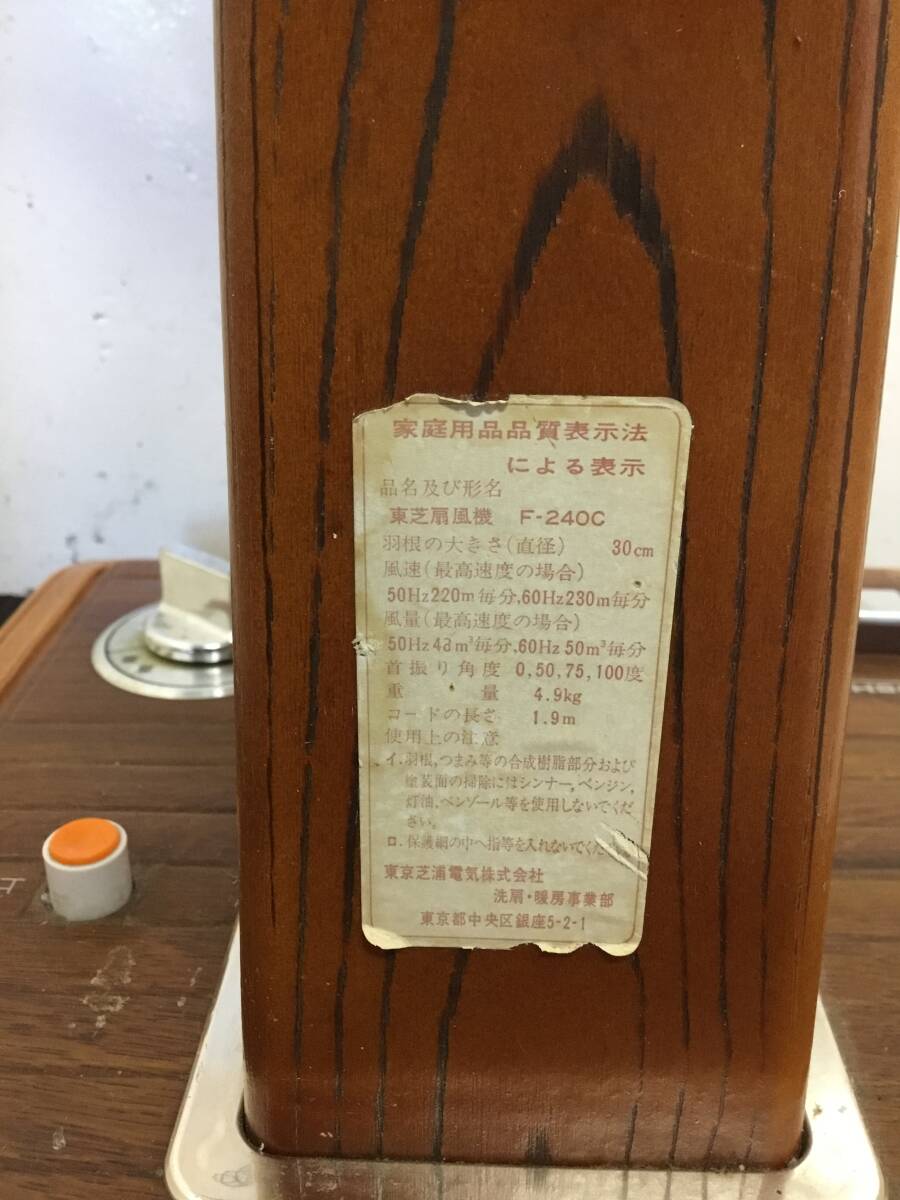 家庭用品品質表示法
による表示
品名及び形名
東芝扇風機 F-240C
羽根の大きさ(直径) 30cm
風速(最高速度の場合)
50Hz220m毎分,60Hz230m毎分
風量(最高速度の場合)
50Hz48m³毎分,60Hz50m³毎分
首振り角度 0,50,75,100度
重量 4.9kg
コードの長さ 1.9m
使用上の注意
イ.羽根,つまみ等の合成樹脂部分および
塗装面の掃除にはシンナー,ベンジン,
灯油,ベンゾール等を使用しないでくだ
さい。
ロ.保護網の中へ指等を入れないでくだ
東京芝浦電気株式会社
洗扇・暖房事業部
東京都中央区銀座5-2-1